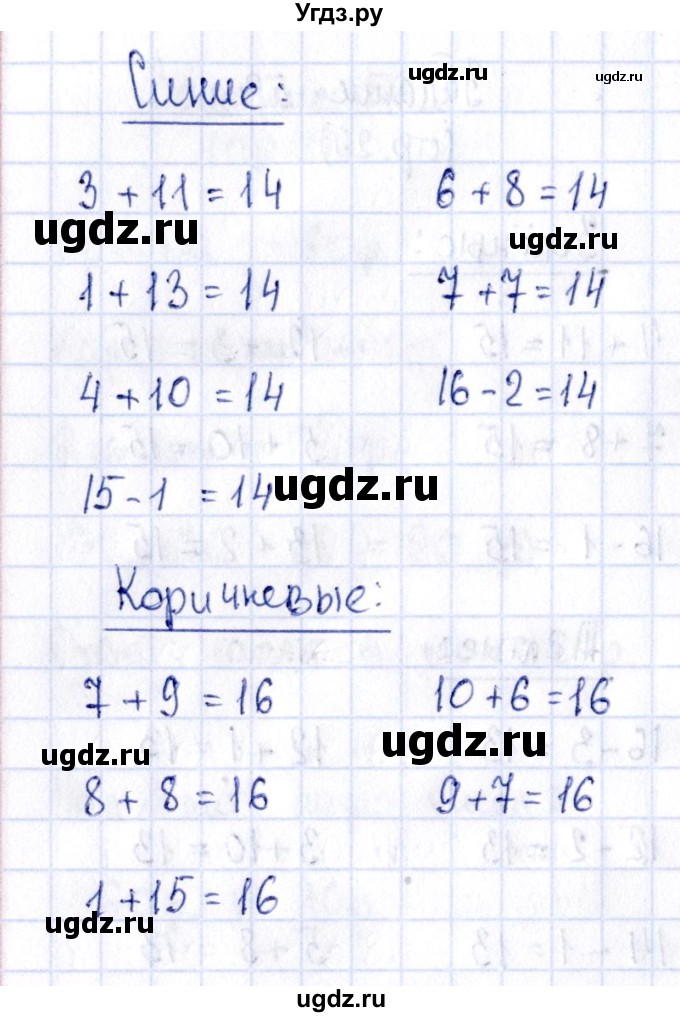 Угдз.ру
ugdz.ru ugdz.ru
Синие:
3 + 11 = 14 6 + 8 = 14
ugdz.ru ugdz.ru
1 + 13 = 14 7 + 7 = 14
4 + 10 = 14 16 - 2 = 14
15 - 1 = 14 ugdz.ru
Коричневые:
7 + 9 = 16 10 + 6 = 16
ugdz.ru ugdz.ru
8 + 8 = 16 9 + 7 = 16
1 + 15 = 16
ugdz.ru
ugdz.ru